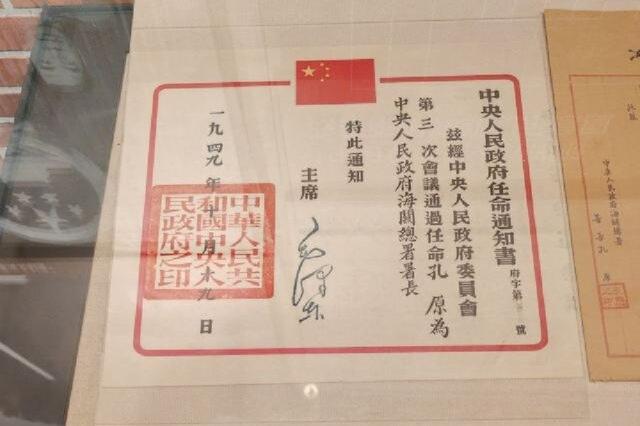 中央人民政府任命通知書
府字第 號
茲經中央人民政府委員會
第三次會議通過任命孔原為
中央人民政府海關總署署長
特此通知
主席
毛澤東
一九四九年十月十九日
中華人民共
和國中央人
民政府之印